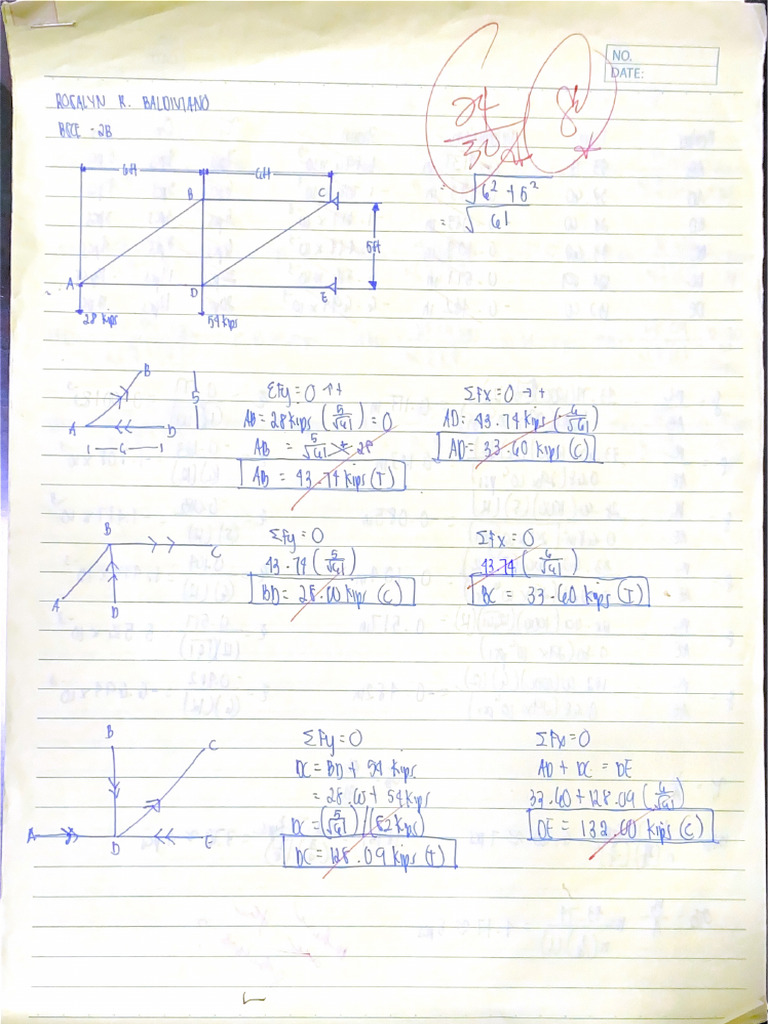 NO.
DATE:
24/30
ROSALYN R. BALDIVIANO
BSCE - 2B
6ft 6ft
B C
= √6² + 5²
= √61
5ft
A D E
28 kips 54 kips
B
5
A D
1 — 6 — 1
ΣFy = 0 ↑+
AB = 28 kips (5/√61) = 0
AB = 5/√61 × 28
AB = 43.74 kips (T)
ΣFx = 0 → +
AD = 43.74 kips (6/√61)
AD = 33.60 kips (C)
B C
A D
ΣFy = 0
43.74 (5/√61)
BD = 28.00 kips (C)
ΣFx = 0
43.74 (6/√61)
BC = 33.60 kips (T)
B C
A D E
ΣFy = 0
DC = BD + 54 kips
= 28.00 + 54 kips
DC = (5/√61) / (82 kips)
DC = 128.09 kips (T)
ΣFx = 0
AD + DC = DE
33.60 + 128.09 (6/√61)
DE = 132.00 kips (C)